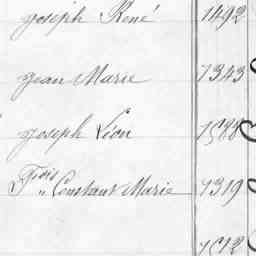 Joseph René 1492
Jean Marie 1343
Joseph Léon 1588
Fçois
„ Constant Marie 1319
1512